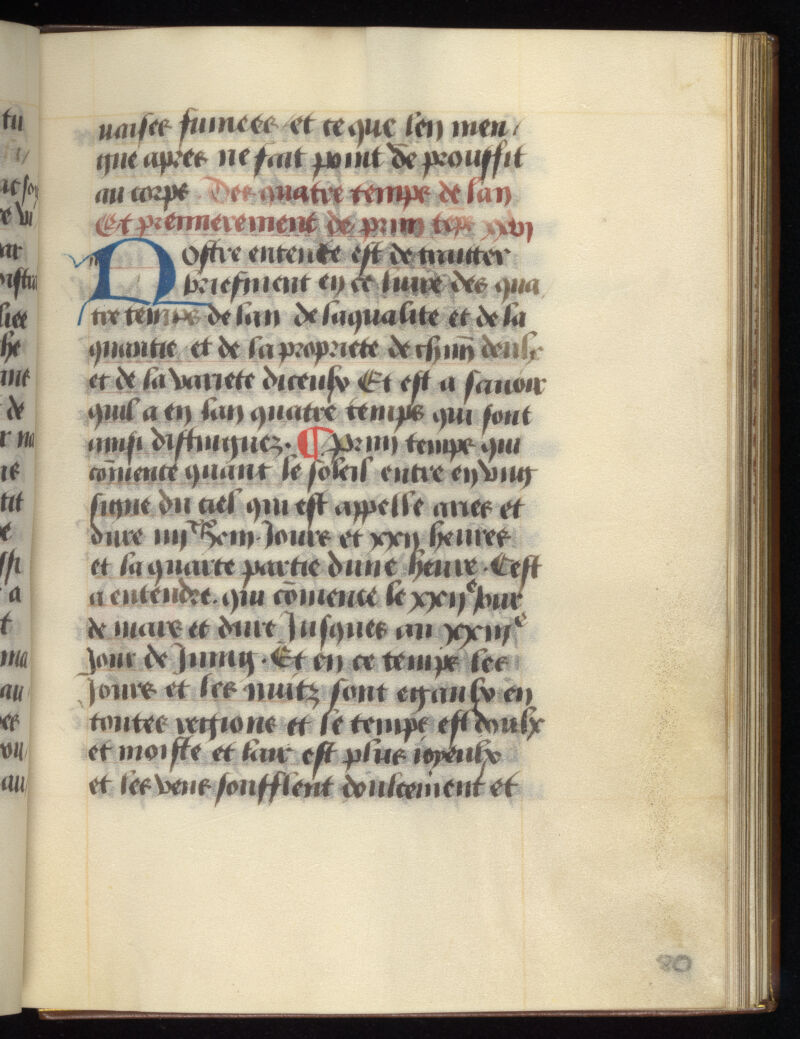 uaises fumees et ce que len men /
gue apres ne fait point de prouffit
au corps Des quatre temps de lan
Et premierement de prim tẽps xxvi
Nostre entente est de traitter
briefment en ce liure des qua
tre temps de lan de laqualite et de la
quantite et de la propriete de chũn deulx
et de la variete diceulx Et est a sauoir
quil a en lan quatre temps qui sont
ainsi distinguez · ¶ Prim temps qui
cõmence quant le soleil entre en vng
signe du ciel qui est appelle aries et
dure iiij xx xiij · Jours et xxij heures
et la quarte partie dune heure · Cest
a entendre · qui cõmence le xxij e Jour
de mars et dure Jusques au xxiiij e
Jour de Juing · Et en ce temps les
Jours et les nuitz sont egaulx en
toutes regions et le temps est doulx
et moiste et lair est plus ioyeulx
et les vens soufflent doulcement et
80